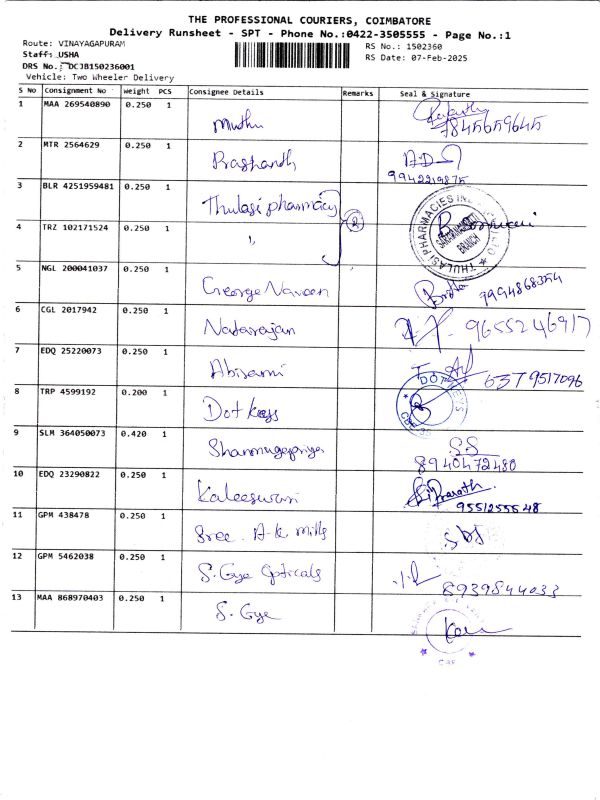 THE PROFESSIONAL COURIERS, COIMBATORE
Delivery Runsheet - SPT - Phone No.:0422-3505555 - Page No.:1
Route: VINAYAGAPURAM RS No.: 1502360
Staff: USHA RS Date: 07-Feb-2025
DRS No.: DCJB150236001
Vehicle: Two Wheeler Delivery
S No Consignment No Weight PCS Consignee Details Remarks Seal & Signature
1 MAA 269540890 0.250 1 Muthu 7845659645
2 MTR 2564629 0.250 1 Prashanth 9942219875
3 BLR 4251959481 0.250 1 Thulasi pharmacy THULASI PHARMACIES BRANCH
4 TRZ 102171524 0.250 1 " 2
5 NGL 200041037 0.250 1 George Naveen 9994868354
6 CGL 2017942 0.250 1 Natarajan 9655246917
7 EDQ 25220073 0.250 1 Abirami 6379517096
8 TRP 4599192 0.200 1 Dot keys DOT KEYS
9 SLM 364050073 0.420 1 Shanmugapriya SS 8940472480
10 EDQ 23290822 0.250 1 Kaleeswari 9551255548
11 GPM 438478 0.250 1 Sree. A.K. Mills
12 GPM 5462038 0.250 1 S. Gye Opticals 8939844033
13 MAA 868970403 0.250 1 S. Gye